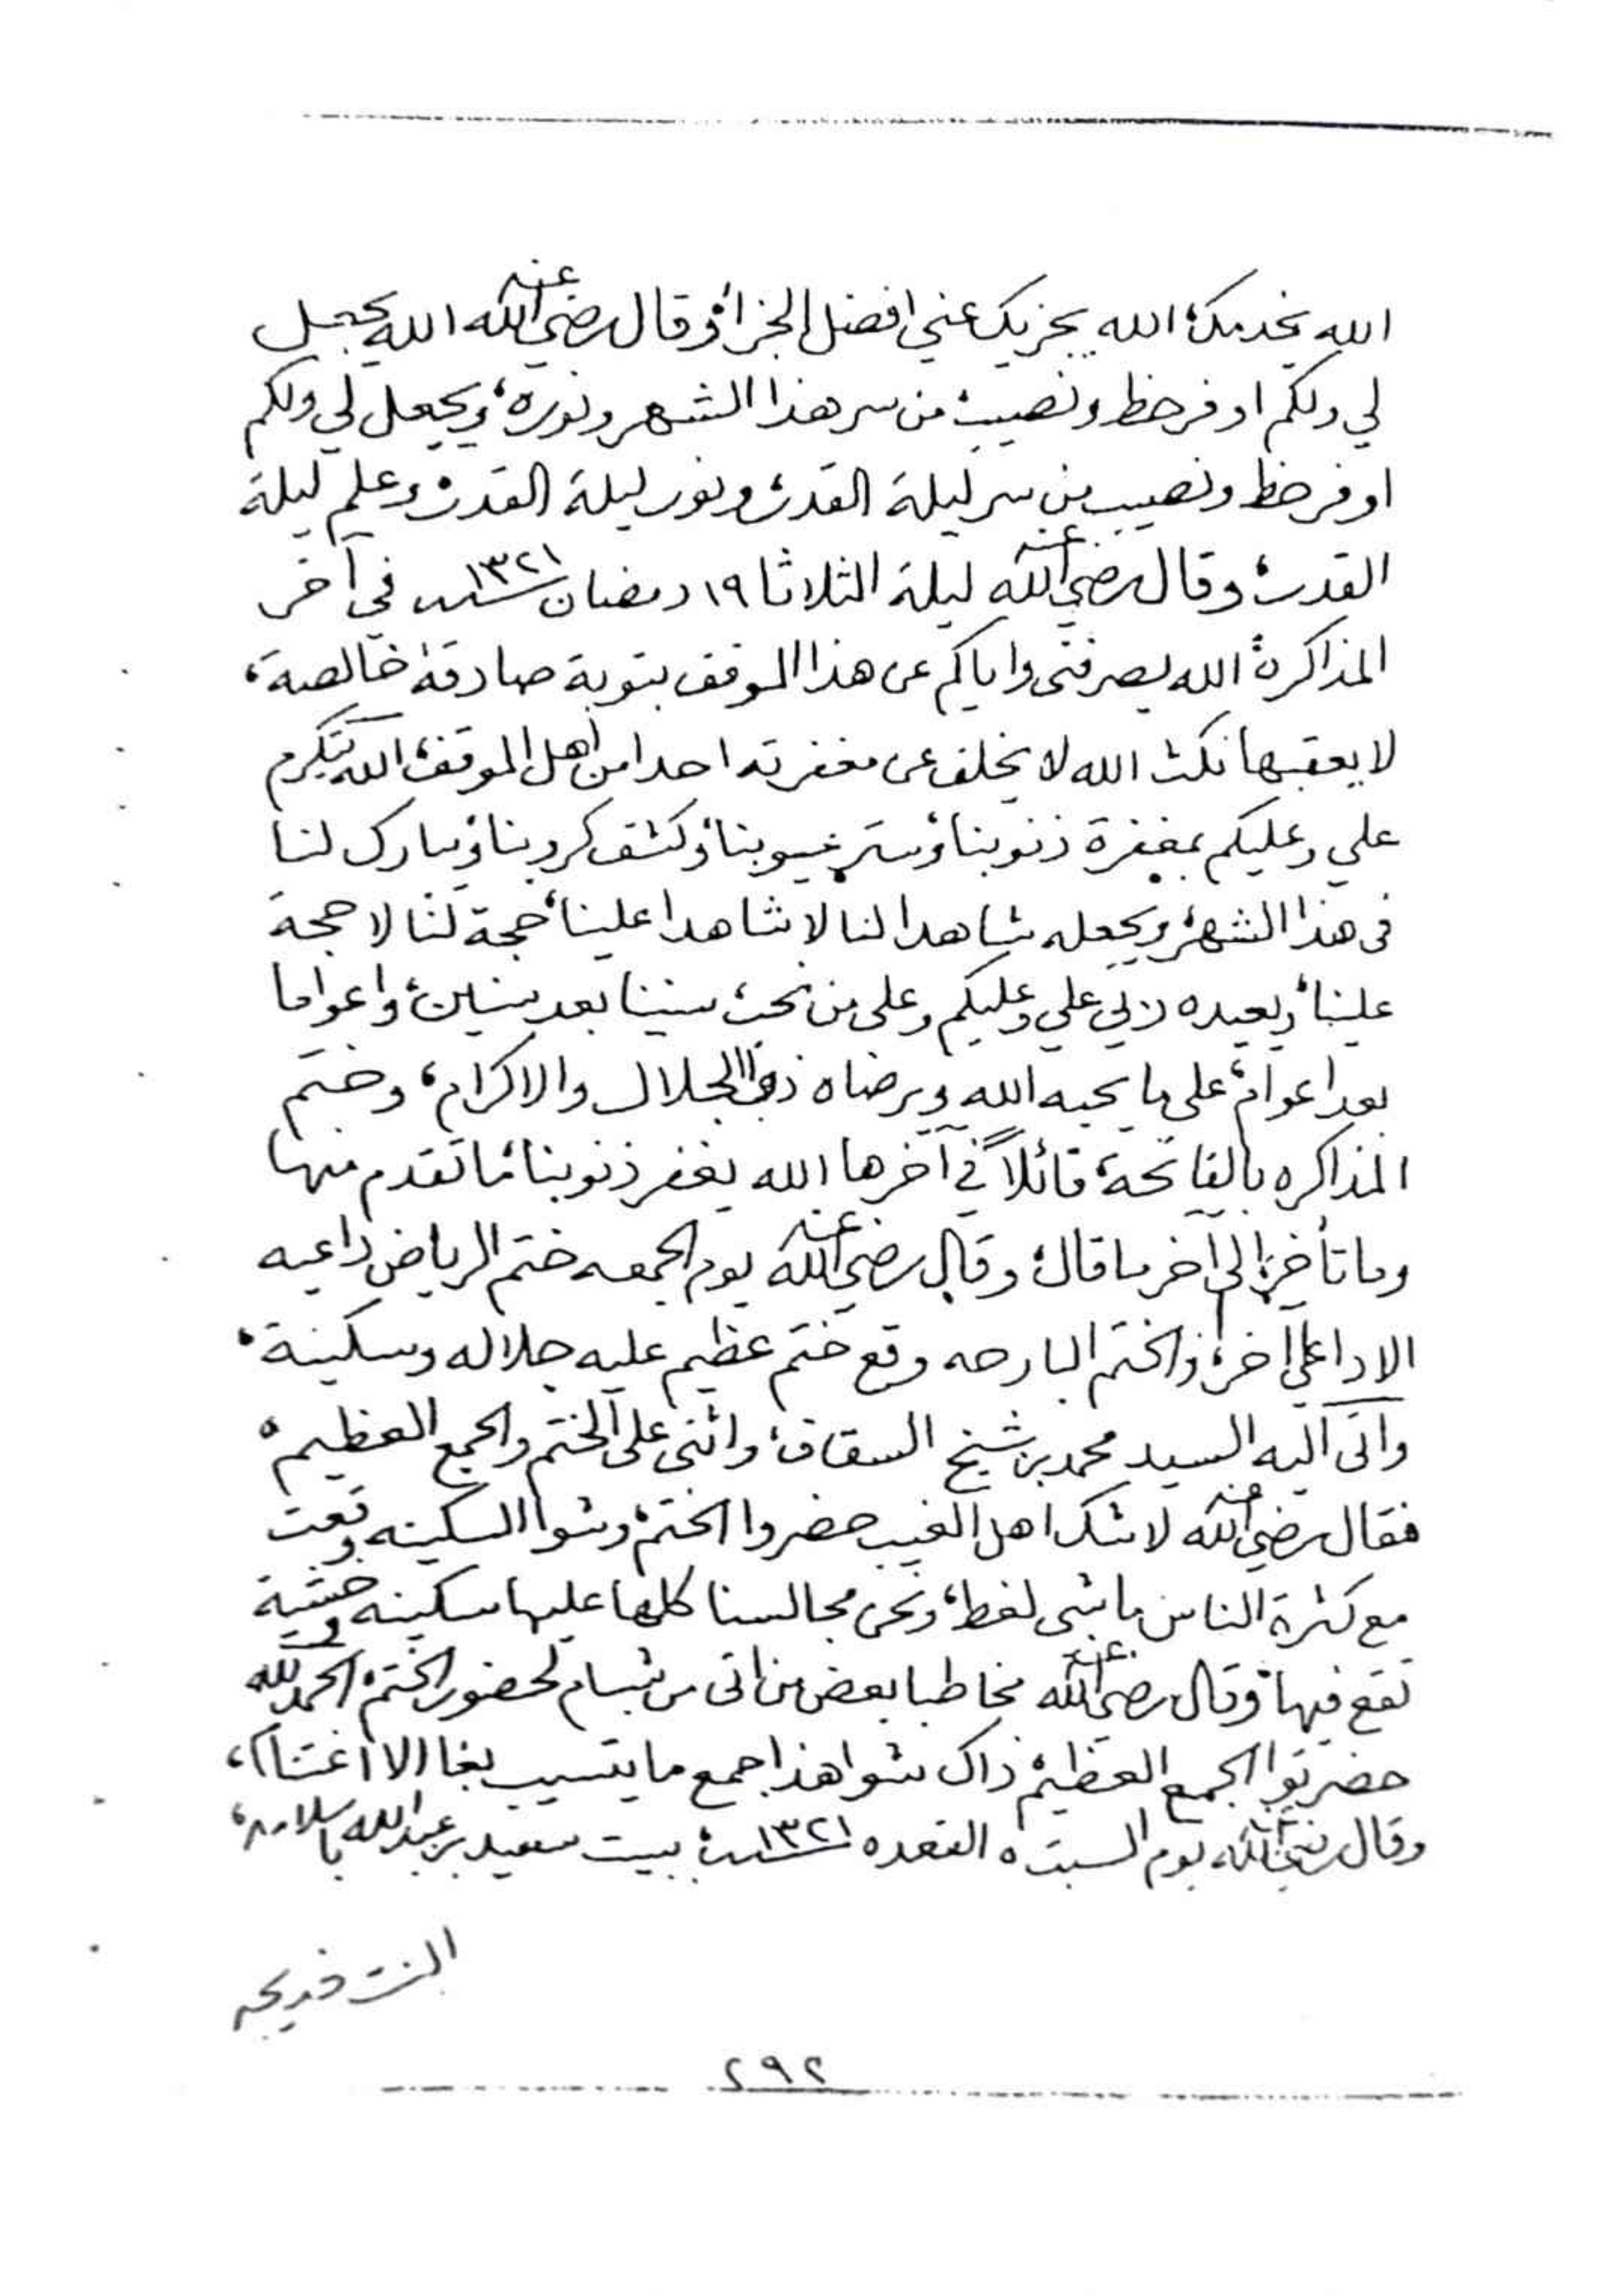 الله يخدمك، الله يجزيك عني افضل الجزاء، وقال رضي الله عنه الله يجعل
لي ولكم اوفر حظ ونصيب من سر هذا الشهر ونوره، ويجعل لي ولكم
اوفر حظ ونصيب من سر ليلة القدر، ونور ليلة القدر، وعلم ليلة
القدر، وقال رضي الله عنه ليلة الثلاثا ١٩ رمضان سنة ١٣٢١ في آخر
المذاكرة، الله يصرفنى واياكم عن هذا الموقف بتوبة صادقة خالصة،
لا يعقبها نكث الله لا يخلف عن مغفرته احدا من اهل الموقف، الله يتكرم
علي وعليكم بمغفرة ذنوبنا، وستر عيوبنا، وكشف كروبنا، ويبارك لنا
فى هذا الشهر، ويجعله شاهدا لنا لا شاهدا علينا، حجة لنا لا حجة
علينا، ويعيده ربي علي وعليكم وعلى من نحب سنينا بعد سنين، واعواما
بعد اعوام، على ما يحبه الله ويرضاه ذو الجلال والاكرام، وختم
المذاكره بالفاتحة، قائلاً في آخرها الله يغفر ذنوبنا، ما تقدم منها
وما تأخر، إلى آخر ما قال، وقال رضي الله عنه يوم الجمعه ختم الرياض داعيه
الا داعي آخر، والختم البارحه وقع ختم عظيم عليه جلاله وسكينة،
واتى اليه السيد محمد بن شيخ السقاف، واثنى على الختم والجمع العظيم،
فقال رضي الله عنه لا شك اهل الغيب حضروا الختم، وشوا السكينه وقعت
مع كثرة الناس ما شى لغط، ونحن مجالسنا كلها عليها سكينه وخشية
تقع فيها، وقال رضي الله عنه مخاطبا بعض من اتى من شبام لحضور الختم، الحمد لله
حضرتوا الجمع العظيم، ذاك شوا هذا جمع ما يتسيب بغا الا اغتنا،
وقال رضي الله عنه يوم السبت ٥ القعده سنة ١٣٢١، ببيت سعيد بن عبدالله باسلامه،
البنت خديجه
٢٩٢